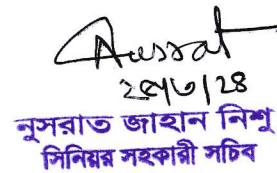 Nusrat
নুসরাত জাহান নিশু
সিনিয়র সহকারী সচিব